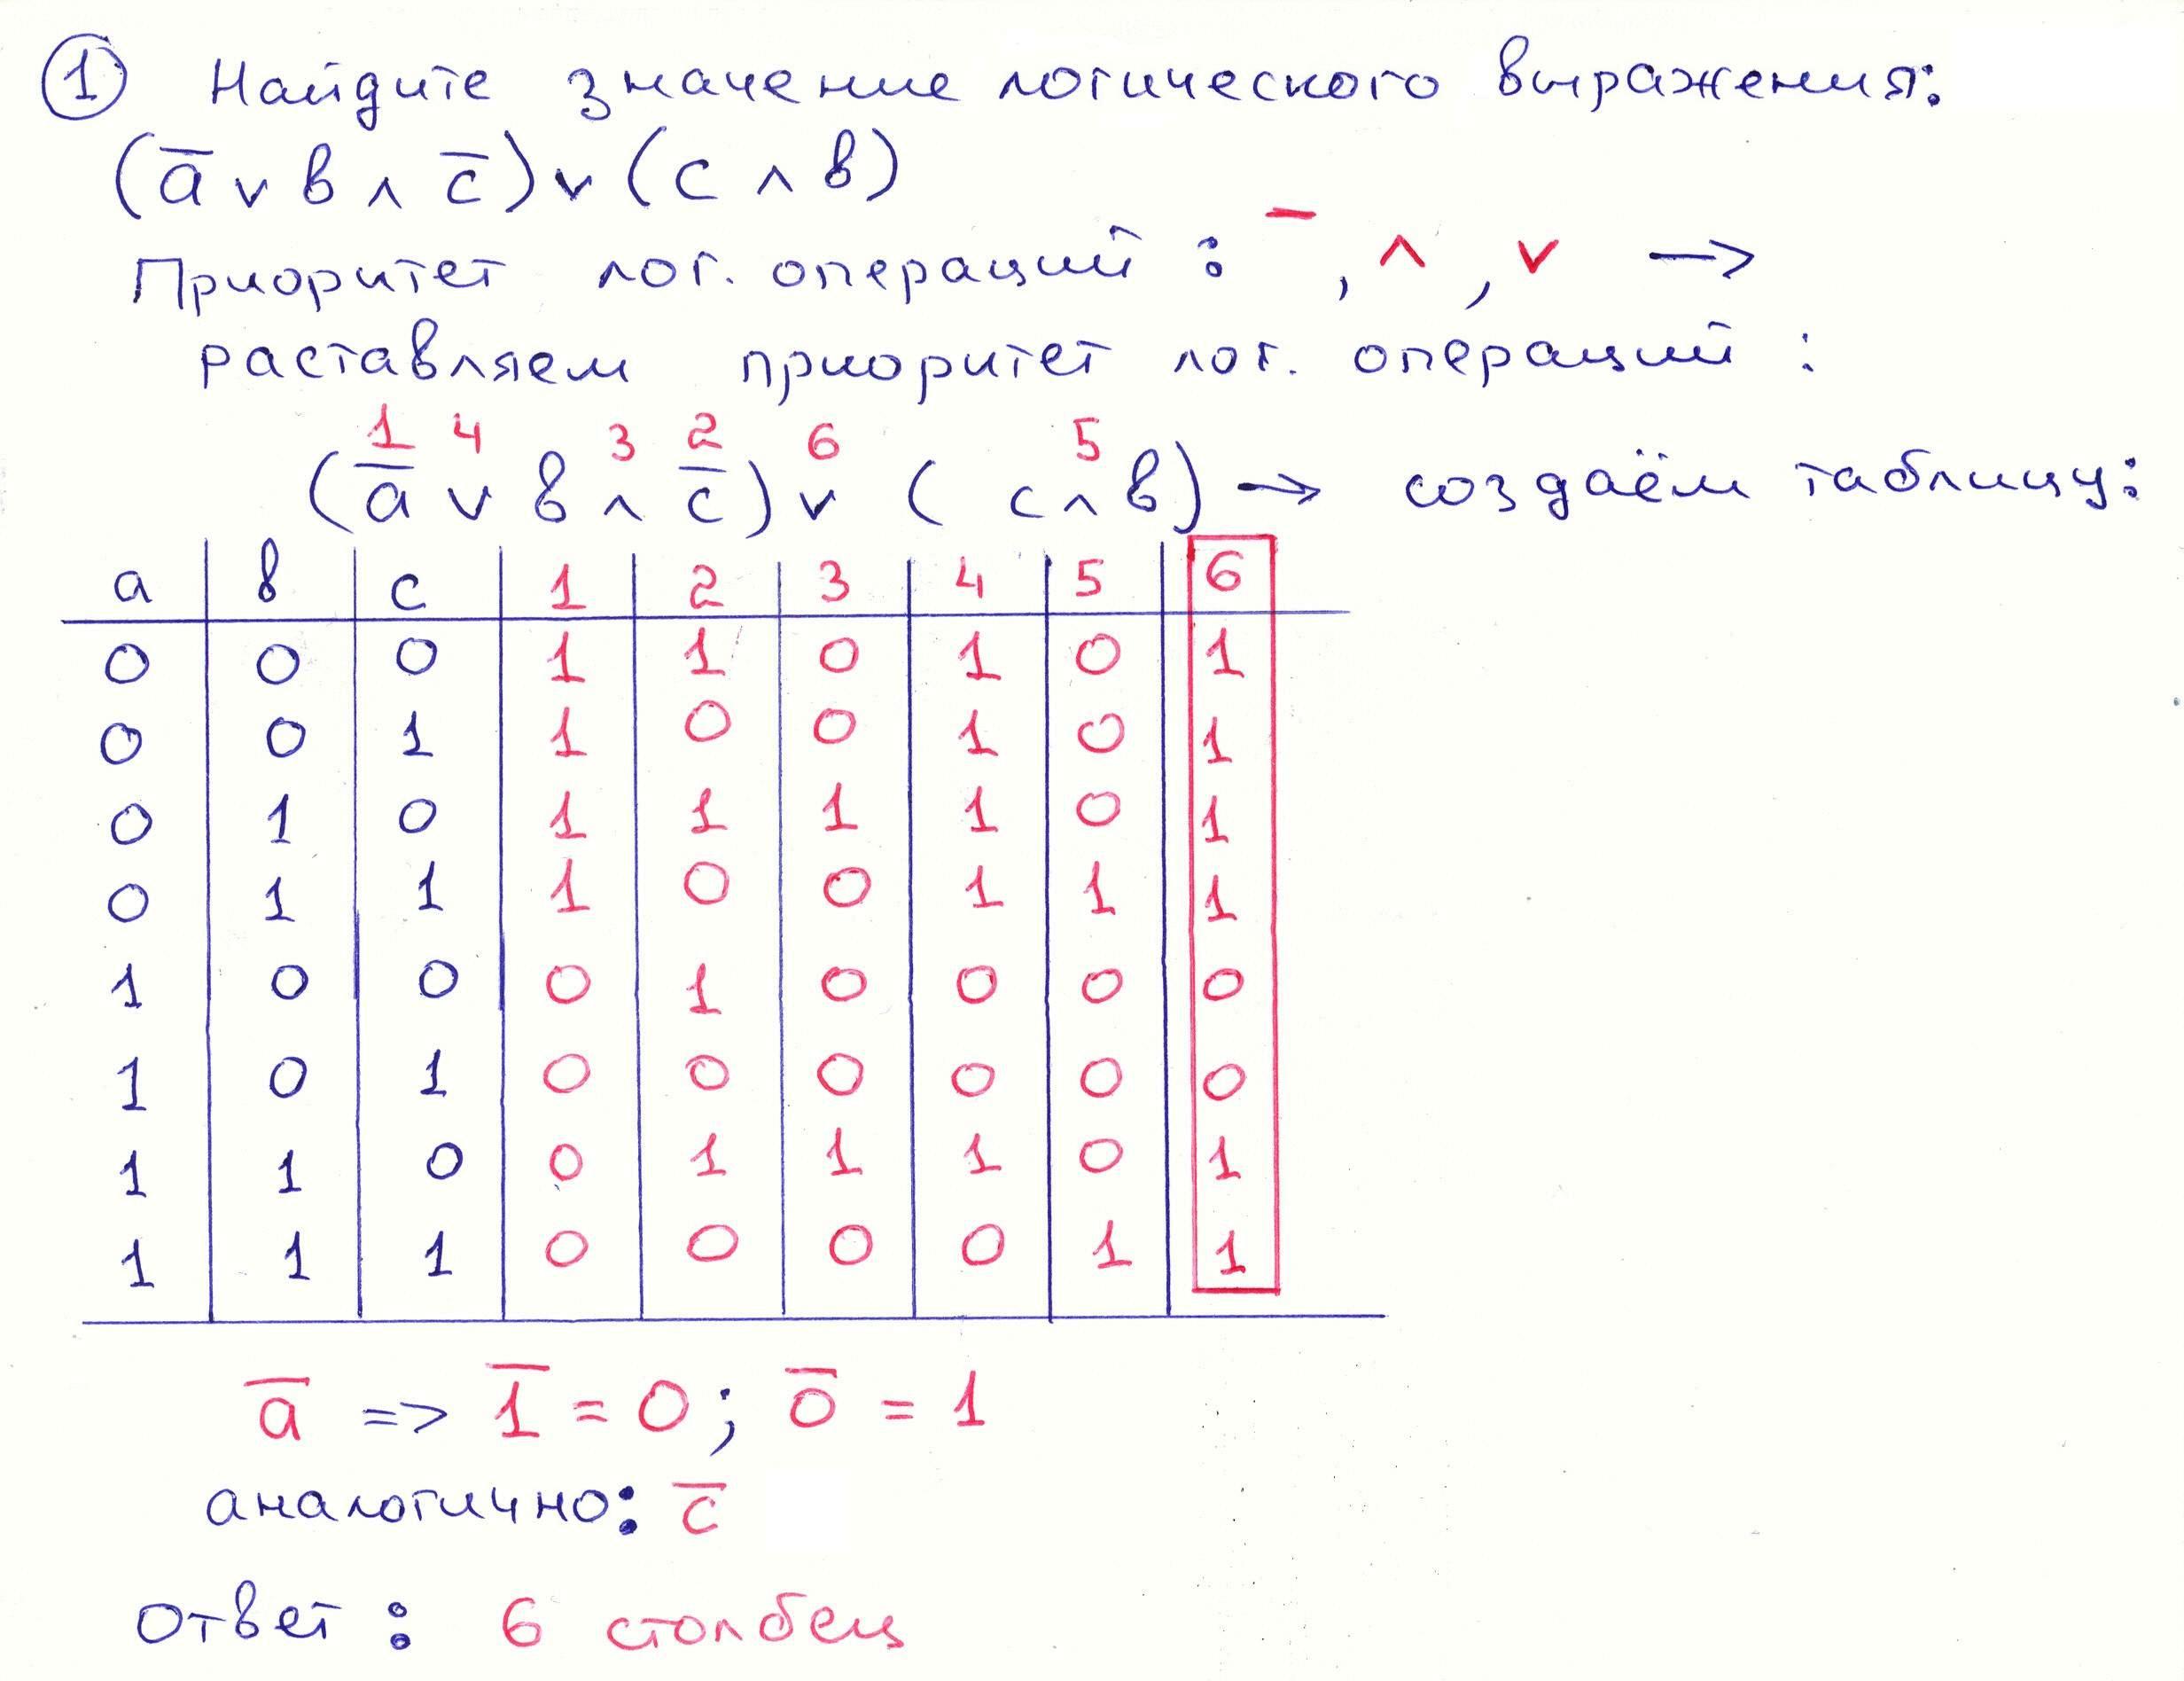 1 Найдите значение логического выражения:
(a̅ ∨ в ∧ c̅) ∨ (c ∧ в)
Приоритет лог. операций : ‾ , ∧ , ∨ →
раставляем приоритет лог. операций :
1 4 3 2 6 5
(a̅ ∨ в ∧ c̅) ∨ ( c ∧ в) → создаём таблицу:
a в c 1 2 3 4 5 6
0 0 0 1 1 0 1 0 1
0 0 1 1 0 0 1 0 1
0 1 0 1 1 1 1 0 1
0 1 1 1 0 0 1 1 1
1 0 0 0 1 0 0 0 0
1 0 1 0 0 0 0 0 0
1 1 0 0 1 1 1 0 1
1 1 1 0 0 0 0 1 1
a̅ => 1̅ = 0; 0̅ = 1
аналогично: c̅
ответ : 6 столбец